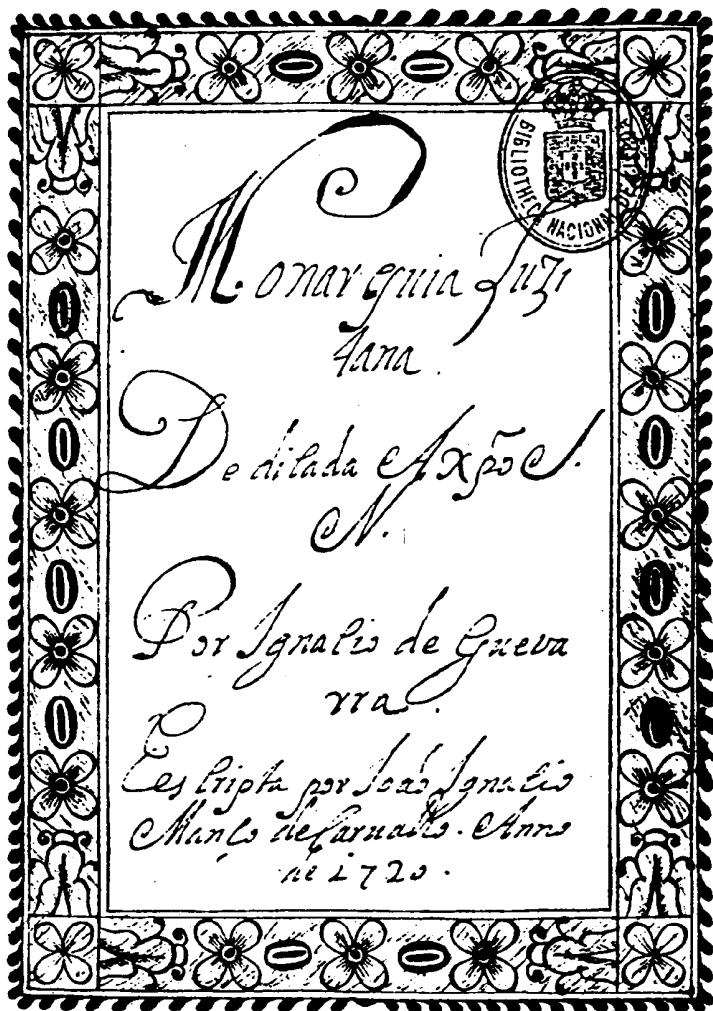 BIBLIOTHECA NACIONAL
Monarquia Luzi
tana.
Dedicada A Xpõ S.
N.
Por Ignacio de Gueva
rra.
E escripta por João Ignacio
de Carualho. Anno
de 1720.